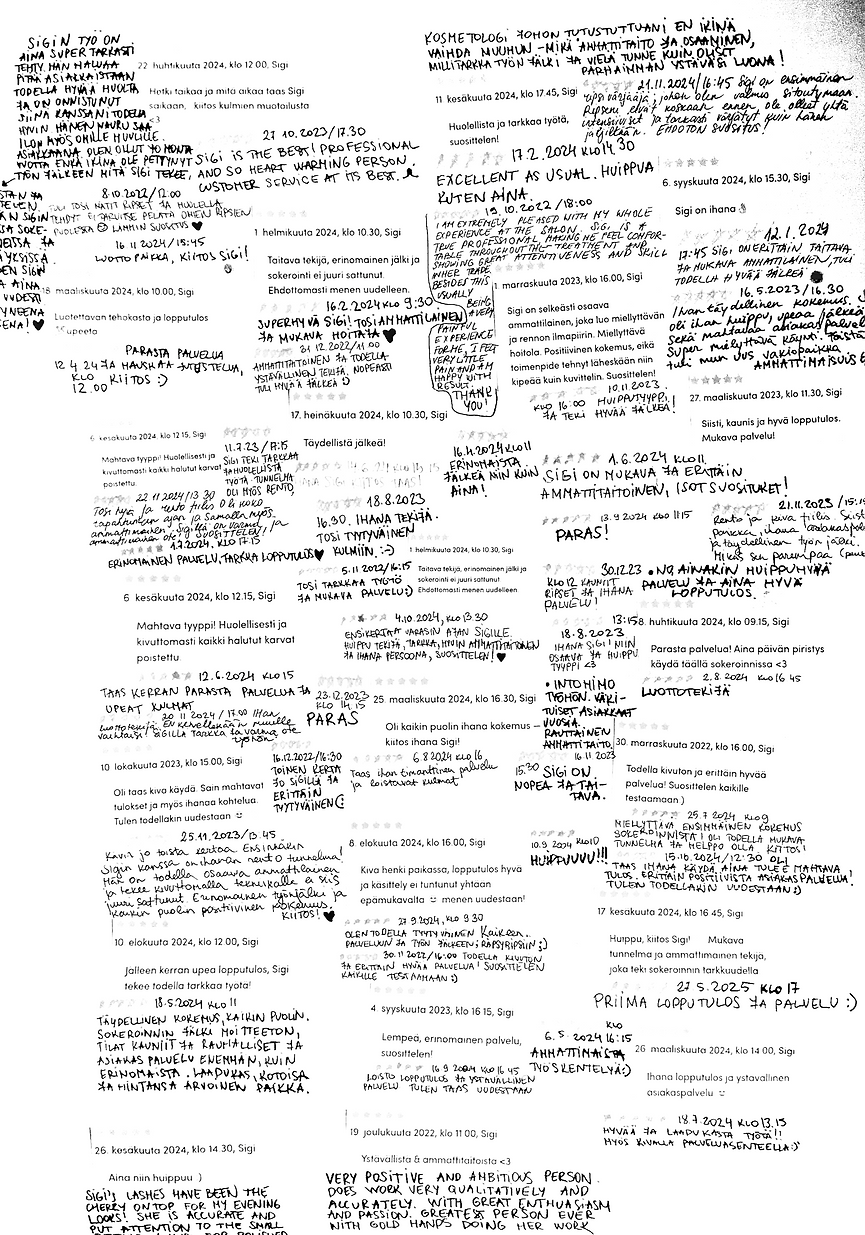 SIGIN TYÖ ON
AINA SUPER TARKASTI
TEHTY, HÄN HALUAA
PITÄÄ ASIAKKAISTAAN
TODELLA HYVÄÄ HUOLTA
JA ON ONNISTUNUT
SIINÄ KANSSANI TODELLA
HYVIN HÄNEN NAURU SAA
ILON MYÖS OMILLE HUULILLE.
ASIAKKAANA OLEN OLLUT JO MONTA
VUOTTA ENKÄ IKINÄ OLE PETTYNYT
TYÖN JÄLKEEN MITÄ SIGI TEKEE,
22 huhtikuuta 2024, klo 12.00, Sigi
Hetki taikaa ja mitä aikaa taas Sigi
saikaan, kiitos kulmien muotoilusta
<3
27.10.2023/17.30
SIGI IS THE BEST! PROFESSIONAL
AND SO HEART WARMING PERSON.
CUSTOMER SERVICE AT ITS BEST.
8.10.2022/12.00
TULI TOSI NÄTIT RIPSET JA HUOLELLA
TEHDYT EI TARVITSE PELÄTÄ OMIEN RIPSIEN
PUOLESTA LÄMMIN SUOSITUS ♥
16.11.2024/15:45
LUOTTO PAIKKA, KIITOS SIGI!
18 maaliskuuta 2024, klo 10.00, Sigi
Luotettavan tehokasta ja lopputulos
upeeta
PARASTA PALVELUA
12.4.24 JA HAUSKAA JUTUSTELUA,
KLO KIITOS :)
12.00
1 helmikuuta 2024, klo 10.30, Sigi
Taitava tekijä, erinomainen jälki ja
sokerointi ei juuri sattunut.
Ehdottomasti menen uudelleen.
16.2.2024 KLO 9:30
SUPERHYVÄ SIGI! TOSI AMMATTILAINEN
JA MUKAVA HOITAJA ♥
31.12.2022/11.00
AMMATTITAITOINEN JA TODELLA
YSTÄVÄLLINEN TEKIJÄ, NOPEASTI
TULI HYVÄÄ JÄLKEÄ :)
17. heinäkuuta 2024, klo 10.30, Sigi
Täydellistä jälkeä!
KOSMETOLOGI JOHON TUTUSTUTTUANI EN IKINÄ
VAIHDA MUUHUN - MIKÄ AMMATTITAITO JA OSAAMINEN,
MILLITARKKA TYÖN JÄLKI JA VIELÄ TUNNE KUIN OLISIT
PARHAIMMAN YSTÄVÄSI LUONA!
11 kesäkuuta 2024, klo 17.45, Sigi
Huolellista ja tarkkaa työtä,
suosittelen!
21.11.2024/16:45 Sigi on ensimmäinen
ripsi värjääjä johon olen valmis sitoutumaan.
Ripseni eivät koskaan ennen ole olleet yhtä
intensiiviset ja tarkasti värjätyt kuin hänen
jäljiltään. EHDOTON SUOSITUS!
17.2.2024 KLO 14.30
EXCELLENT AS USUAL. HUIPPUA
KUTEN AINA.
6. syyskuuta 2024, klo 15.30, Sigi
Sigi on ihana
19.10.2022/18:00
I AM EXTREMELY PLEASED WITH MY WHOLE
EXPERIENCE AT THE SALON. SIGI IS A
TRUE PROFESSIONAL, MAKING ME FEEL COMFOR-
TABLE THROUGHOUT THE TREATMENT AND
SHOWING GREAT ATTENTIVENESS AND SKILL
IN HER TRADE.
BESIDES THIS
USUALLY
BEING
A VERY
PAINFUL
EXPERIENCE
FOR ME, I FELT
VERY LITTLE
PAIN AND AM
HAPPY WITH
RESULT.
THANK
YOU!
1 marraskuuta 2023, klo 16.00, Sigi
Sigi on selkeästi osaava
ammattilainen, joka luo miellyttävän
ja rennon ilmapiirin. Miellyttävä
hoitola. Positiivinen kokemus, eikä
toimenpide tehnyt läheskään niin
kipeää kuin kuvittelin. Suosittelen!
12.1.2024
17:45 SIGI ON ERITTÄIN TAITAVA
JA MUKAVA AMMATTILAINEN, TULI
TODELLA HYVÄÄ JÄLKEÄ
16.5.2023/16.30
Ihan täydellinen kokemus.
oli ihan huippu, upeaa jälkeä
sekä mahtavaa
Super miellyttävä käynti.
tuli mun uus vakiopaikka
10.11.2023.
KLO 16:00 HUIPPUTYYPPI
JA TEKI HYVÄÄ JÄLKEÄ!
27. maaliskuuta 2023, klo 11.30, Sigi
Siisti, kaunis ja hyvä lopputulos.
Mukava palvelu!
6. kesäkuuta 2024, klo 12.15, Sigi
Mahtava tyyppi! Huolellisesti ja
kivuttomasti kaikki halutut karvat
poistettu.
11.7.23/17:15
SIGI TEKI TARKKAA
JA HUOLELLISTA
TYÖTÄ. TUNNELMA
OLI MYÖS RENTO.
22.11.2024/13.30
Tosi kiva ja rento fiilis oli koko
tapahtuman ajan ja samalla myös
ammattimainen. Sigillä on varma ja
ammattimainen ote! SUOSITTELEN!
1.7.2024, KLO 17.15
ERINOMAINEN PALVELU, TARKKA LOPPUTULOS ♥
18.8.2023
16.30. IHANA TEKIJÄ.
TOSI TYYTYVÄINEN
KULMIIN. :-)
16.4.2024 KLO 11
ERINOMAISTA
JÄLKEÄ NIIN KUIN
AINA!
1.6.2024 KLO 11.
SIGI ON MUKAVA JA ERITTÄIN
AMMATTITAITOINEN, ISOT SUOSITUKSET!
13.9.2024 KLO 11.15
PARAS!
21.11.2023
Rento ja kiva fiilis.
ja täydellinen työn jälki.
5.11.2022/16:15
TOSI TARKKAA TYÖTÄ
JA MUKAVA PALVELU :)
1 helmikuuta 2024, klo 10.30, Sigi
Taitava tekijä, erinomainen jälki ja
sokerointi ei juuri sattunut
Ehdottomasti menen uudelleen
30.12.23
KLO 12 KAUNIIT
RIPSET JA IHANA
PALVELU!
• NO AINAKIN HUIPPUHYVÄ
PALVELU JA AINA HYVÄ
LOPPUTULOS.
6 kesäkuuta 2024, klo 12.15, Sigi
Mahtava tyyppi! Huolellisesti ja
kivuttomasti kaikki halutut karvat
poistettu
4.10.2024, KLO 13.30
ENSIKERTAA VARASIN AJAN SIGILLE.
HUIPPU TEKIJÄ, TARKKA, HYVIN AMMATTITAITOINEN
JA IHANA PERSOONA, SUOSITTELEN! ♥
13:15
18.8.2023
IHANA SIGI! NIIN
OSAAVA JA HUIPPU
TYYPPI <3
8. huhtikuuta 2024, klo 09.15, Sigi
Parasta palvelua! Aina päivän piristys
käydä täällä sokeroinnissa <3
2.8.2024 KLO 16.45
LUOTTOTEKIJÄ
12.6.2024 KLO 15
TAAS KERRAN PARASTA PALVELUA JA
UPEAT KULMAT
20.11.2024/17.00 Ihan
luottotekijä. EN kävelisikään muille
SIGILLÄ Tarkka ja varma ote
työhön.
23.12.2023
KLO 14.15
PARAS
25. maaliskuuta 2024, klo 16.30, Sigi
Oli kaikin puolin ihana kokemus –
kiitos ihana Sigi!
• INTOHIMO
TYÖHÖN. VAKI-
TUISET ASIAKKAAT
VUOSIA.
RAUTAINEN
AMMATTITAITO.
10 lokakuuta 2023, klo 15.00, Sigi
Oli taas kiva käydä. Sain mahtavat
tulokset ja myös ihanaa kohtelua.
Tulen todellakin uudestaan
16.12.2022/16:30
TOINEN KERTA
JO SIGILLÄ JA
ERITTÄIN
TYYTYVÄINEN (:
6.8.2024 KLO 16
Taas ihan timanttinen palvelu
ja loistavat kulmat
16.11.2023
15.30 SIGI ON
NOPEA JA TAI-
TAVA.
30. marraskuuta 2022, klo 16.00, Sigi
Todella kivuton ja erittäin hyvää
palvelua! Suosittelen kaikille
testaamaan )
25.11.2023/13.45
Kävin jo toista kertaa. Ensinnäkin
Sigin kanssa on ihanan rento tunnelma!
Hän on todella osaava ammattilainen
ja tekee kivuttomalla tekniikalla ei siis
juuri sattunut. Erinomainen työnjälki ja
kaikin puolin positiivinen kokemus.
KIITOS! ♥
8 elokuuta 2024, klo 16.00, Sigi
Kiva henki paikassa, lopputulos hyvä
ja käsittely ei tuntunut yhtään
epämukavalta menen uudestaan!
10.9.2024 KLO 10
HUIPPUUUU!!!
25.7.2024 KLO 9
MIELLYTTÄVÄ ENSIMMÄINEN KOKEMUS
SOKEROINNISTA! OLI TODELLA MUKAVA
TUNNELMA JA HELPPO OLLA. KIITOS!
15.10.2024/12:30 OLI
TAAS IHANA KÄYDÄ, AINA TULEE MAHTAVA
TULOS. ERITTÄIN POSITIIVISTA ASIAKASPALVELUA!
TULEN TODELLAKIN UUDESTAAN :)
10 elokuuta 2023, klo 12.00, Sigi
Jälleen kerran upea lopputulos, Sigi
tekee todella tarkkaa työtä!
27.9.2024, KLO 9.30
OLEN TODELLA TYYTYVÄINEN Kaikeen.
PALVELUUN JA TYÖN JÄLKEEN; RÄPSYRIPSIIN ;)
30.11.2022/16:00 TODELLA KIVUTON
JA ERITTÄIN HYVÄÄ PALVELUA! SUOSITTELEN
KAIKILLE TESTAAMAAN :)
17 kesäkuuta 2024, klo 16.45, Sigi
Huippu, kiitos Sigi! Mukava
tunnelma ja ammattimainen tekijä,
joka teki sokeroinnin tarkkuudella
27.5.2025 KLO 17
PRIIMA LOPPUTULOS JA PALVELU :)
18.5.2024 KLO 11
TÄYDELLINEN KOKEMUS, KAIKIN PUOLIN.
SOKEROINNIN JÄLKI MOITTEETON,
TILAT KAUNIIT JA RAUHALLISET JA
ASIAKAS PALVELU ENEMMÄN, KUIN
ERINOMAISTA. LAADUKAS, KOTOISA
JA HINTANSA ARVOINEN PAIKKA.
4. syyskuuta 2023, klo 16.15, Sigi
Lempeä, erinomainen palvelu,
suosittelen!
16.9.2024 KLO 16.45
LOISTO LOPPUTULOS JA YSTÄVÄLLINEN
PALVELU TULEN TAAS UUDESTAAN
KLO
6.5.2024 16:15
AMMATTIMAISTA
TYÖSKENTELYÄ :)
26 maaliskuuta 2024, klo 14.00, Sigi
Ihana lopputulos ja ystävällinen
asiakaspalvelu
18.7.2024 KLO 13.15
HYVÄÄ JA LAADUKASTA TYÖTÄ!!
MYÖS KIVALLA PALVELUASENTEELLA :)
26. kesäkuuta 2024, klo 14.30, Sigi
Aina niin huippuu )
SIGI'S LASHES HAVE BEEN THE
CHERRY ON TOP FOR MY EVENING
LOOKS! SHE IS ACCURATE AND
PUT ATTENTION TO THE SMALL
19 joulukuuta 2022, klo 11.00, Sigi
Ystävällistä & ammattitaitoista <3
VERY POSITIVE AND AMBITIOUS PERSON.
DOES WORK VERY QUALITATIVELY AND
ACCURATELY. WITH GREAT ENTHUSIASM
AND PASSION. GREATEST PERSON EVER
WITH GOLD HANDS DOING HER WORK